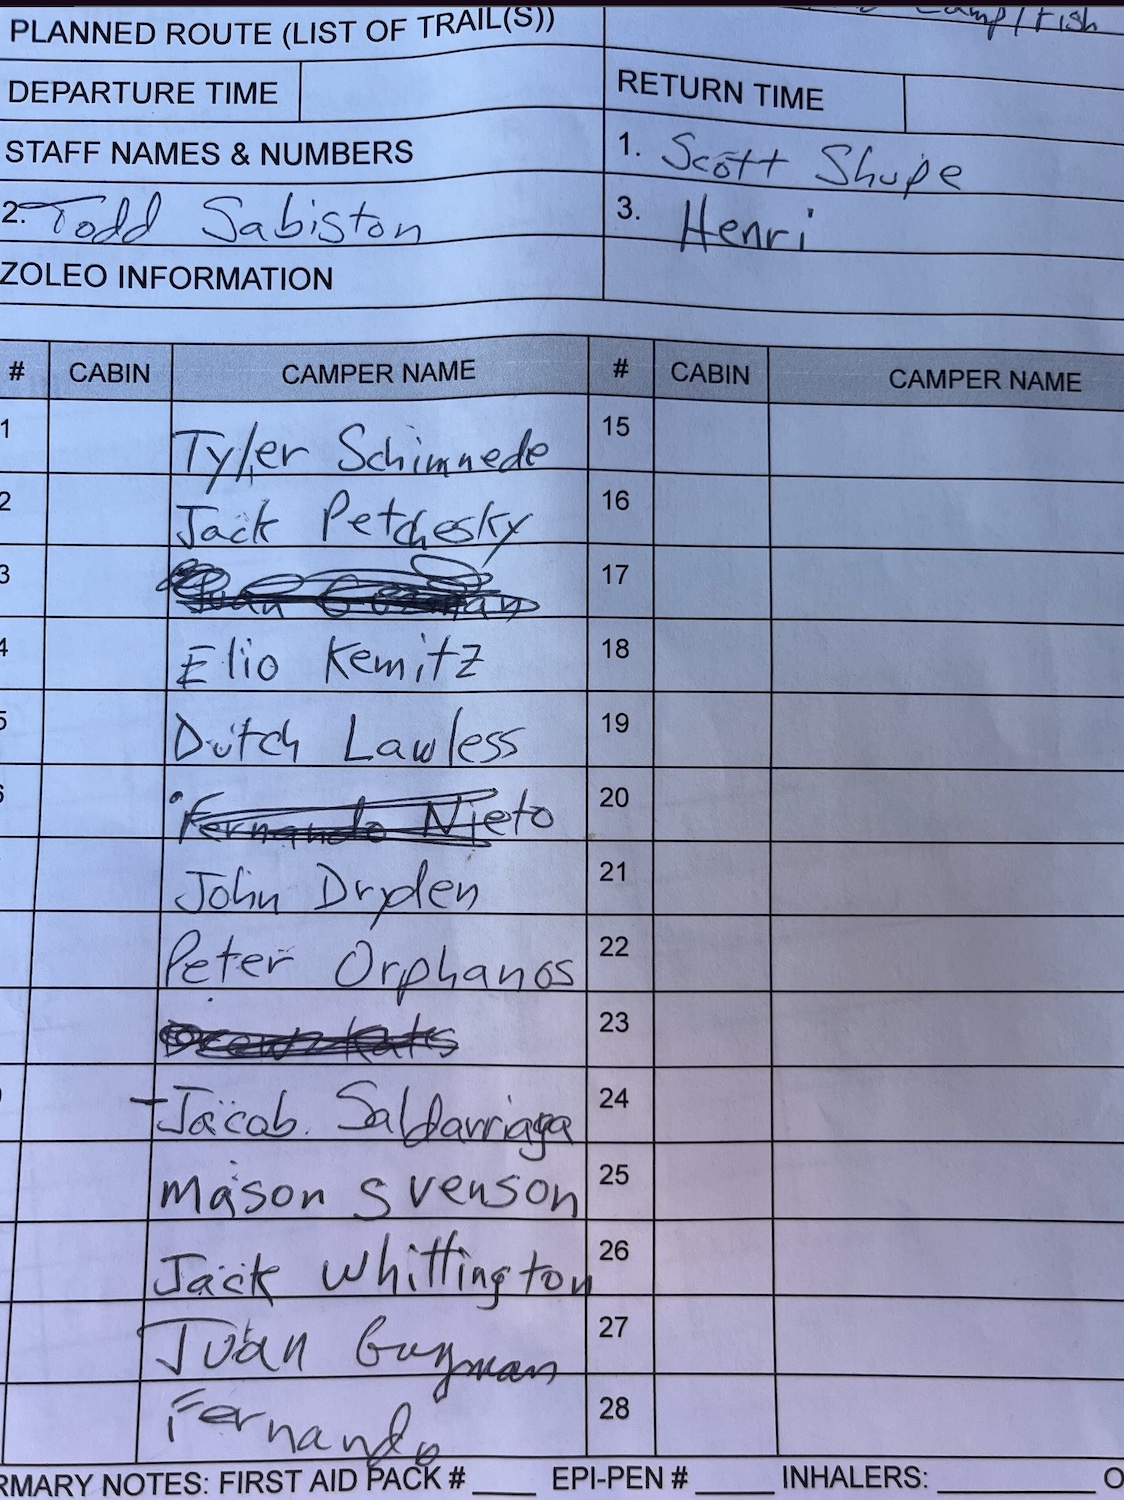 Camp/Fish
PLANNED ROUTE (LIST OF TRAIL(S))
DEPARTURE TIME RETURN TIME
STAFF NAMES & NUMBERS 1. Scott Shupe
2. Todd Sabiston 3. Henri
ZOLEO INFORMATION
# CABIN CAMPER NAME # CABIN CAMPER NAME
1 Tyler Schimnede 15
2 Jack Petchesky 16
3 17
4 Elio Kemitz 18
5 Dutch Lawless 19
6 Fernando Nieto 20
John Dryden 21
Peter Orphanos 22
23
Jacob Saldarriaga 24
Mason Svenson 25
Jack Whittington 26
Juan Guzman 27
Fernando 28
RMARY NOTES: FIRST AID PACK # ____ EPI-PEN # ____ INHALERS: ____ O